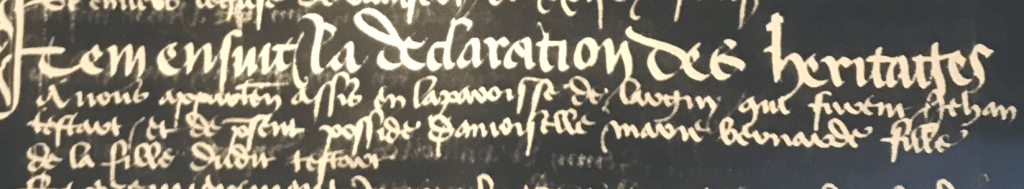 Item ensuit la declaration des heritages
A nous apparten assis en lapavoisse de que furent Jehan
testart et de pnt posside damoiselle marie bernarde fille
de la fille dudit testart